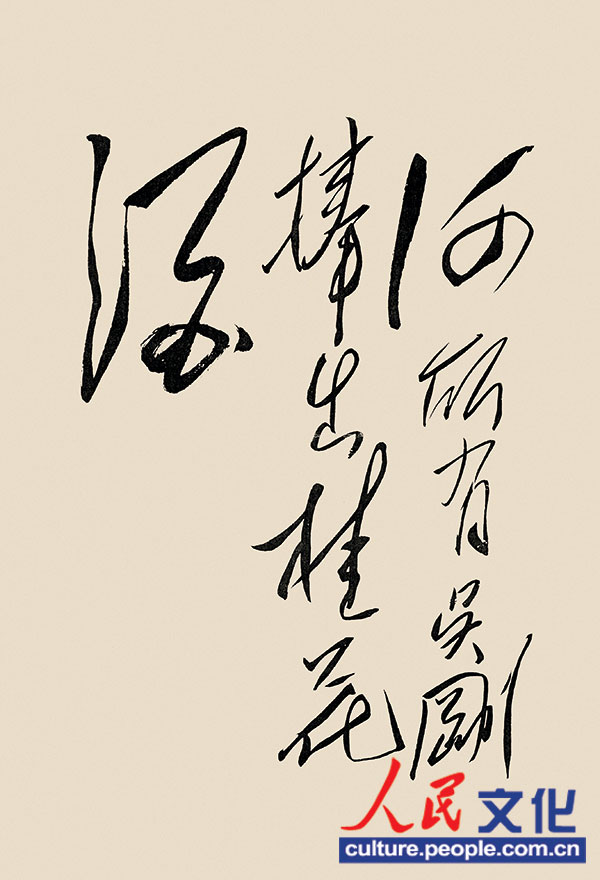 何所有吴刚
捧出桂花
酒
人民文化
culture.people.com.cn